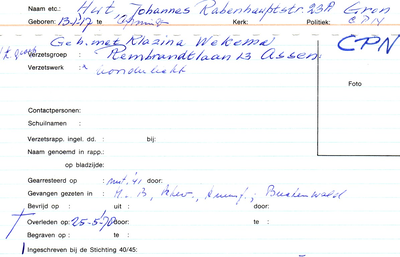 Naam etc.: Hut Johannes Rabenhauptstr. 23A Gron
Geboren: 13-1-17 te Kerk: Politiek: CPN
Geb. met Klazina Wekema
Verzetsgroep : Rembrandtlaan 13 Assen CPN
Verzetswerk :
Foto
Contactpersonen:
Schuilnamen :
Verzetsrapp. ingel. dd. : bij:
Naam genoemd in rapp.:
op bladzijde:
Gearresteerd op : '41 door:
Gevangen gezeten in : Buchenwald
Bevrijd op : uit : door:
Overleden op : 25-5-70 door: te :
Begraven op : te :
Ingeschreven bij de Stichting 40/45: